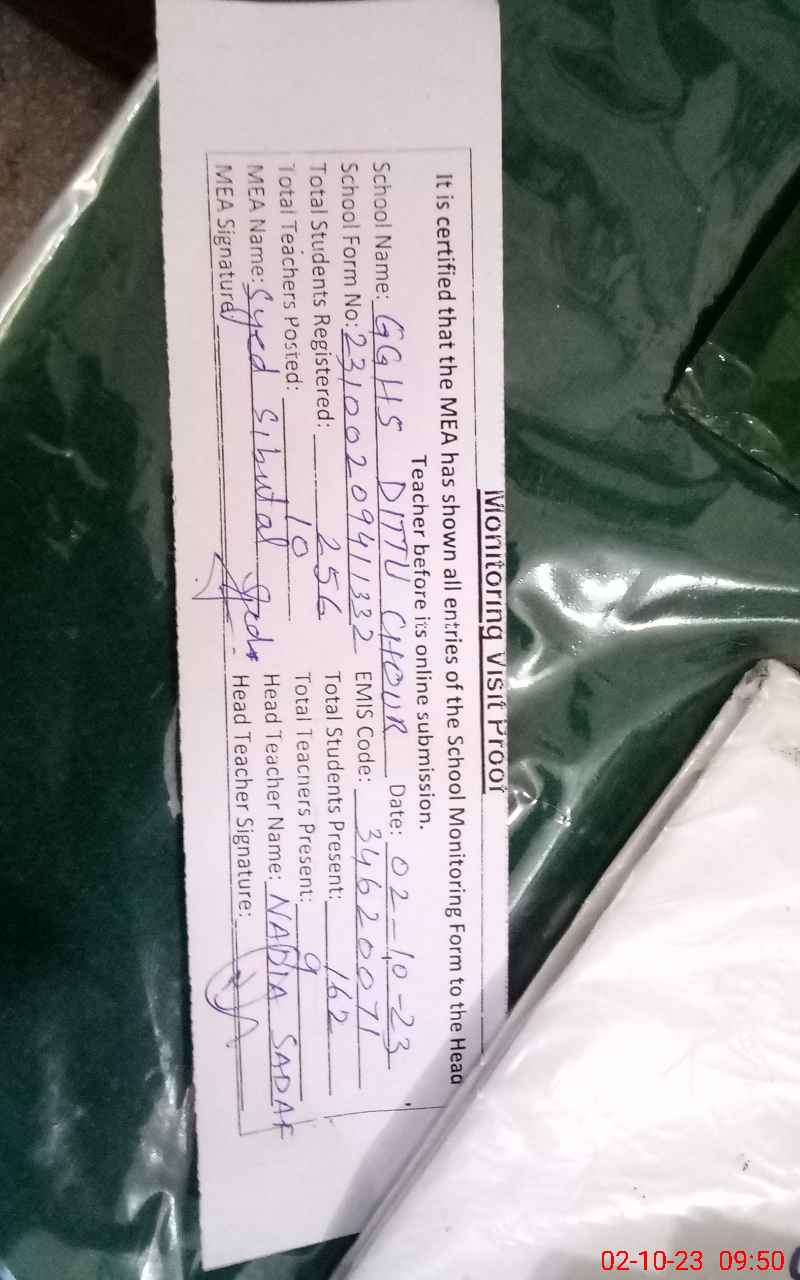 Monitoring Visit Proof
It is certified that the MEA has shown all entries of the School Monitoring Form to the Head
Teacher before its online submission.
School Name: GGHS DITTU CHOUR Date: 02-10-23
School Form No: 23100209411332 EMIS Code: 34620071
Total Students Registered: 256 Total Students Present: 162
Total Teachers Posted: 10 Total Teachers Present: 9
MEA Name: Syed Sibutal Head Teacher Name: NADIA SADAF
MEA Signature: Head Teacher Signature:
02-10-23 09:50